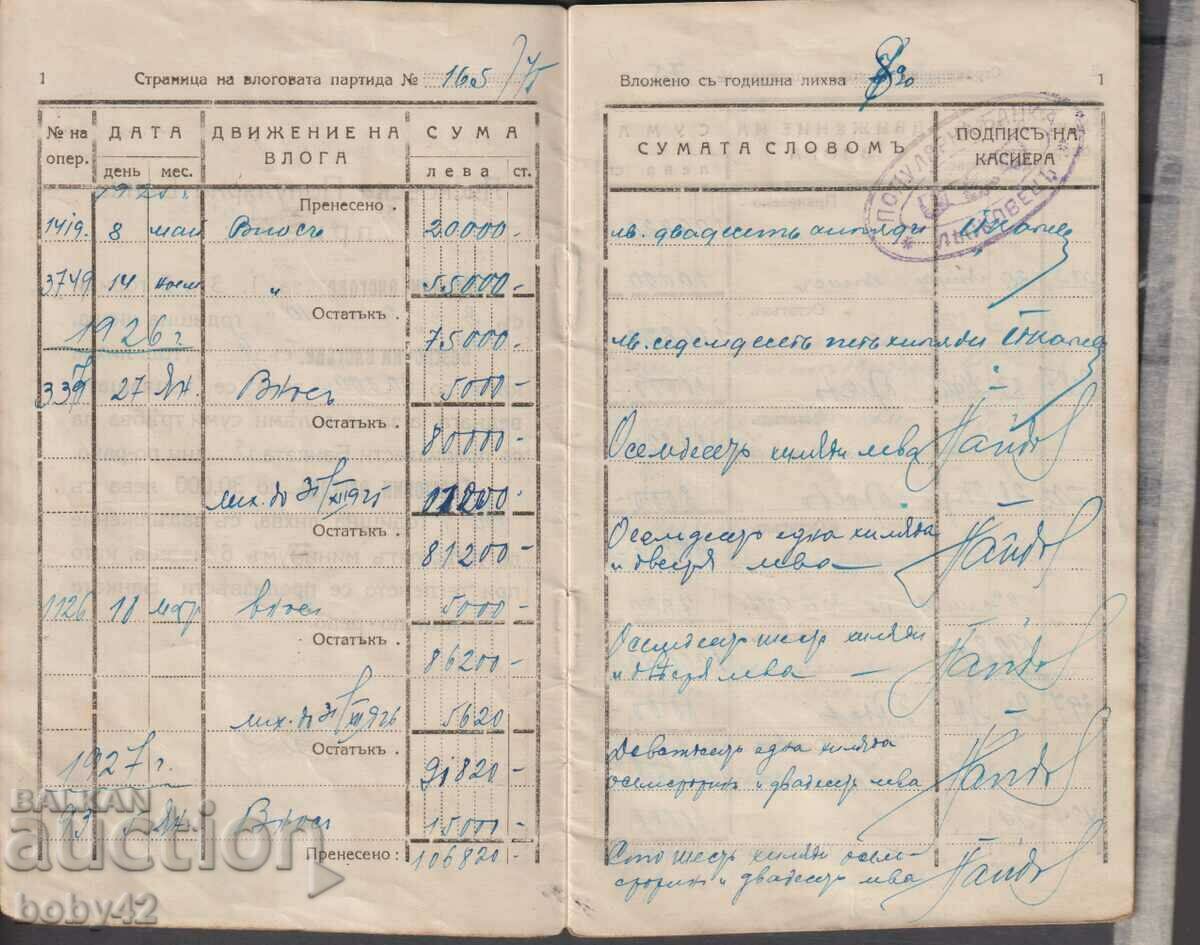 1 Страница на влоговата партида № 165/75
№ на опер. ДАТА ДВИЖЕНИЕ НА ВЛОГА СУМА
день мес. ЛЕВА ст.
1925 г.
Пренесено .
1419. 8 май Вносъ 20.000 -
3749 14 ноем " 55000 -
Остатъкъ .
1926 г. 75000 -
339 27 Ян. Вносъ 5000 -
Остатъкъ . 80000 -
лих. до 31/XII 925 1200 -
Остатъкъ . 81200 -
1126 18 мар внос 5000 -
Остатъкъ . 86200 -
лих. до 31/XII 926 5620 -
Остатъкъ .
1927 г. 91820 -
93 Ян. Внос 15000 -
Пренесено : 106820 -
Вложено съ годишна лихва 8% 1
СУМАТА СЛОВОМЪ ПОДПИСЪ НА КАСИЕРА
ПОПУЛЯРНА БАНКА
ЛЯСКОВЕЦЪ
лв. двадесеть хиляди
лв. седемдесеть петь хиляди
Осемдесеть хиляди лева
Осемдесеть една хиляда
и двеста лева —
Осемдесеть шесть хиляди
и двеста лева —
Деветдесеть една хиляда
осемстотин и двадесеть лева
Сто шесть хиляди осем-
стотин и двадесеть лева
BALKAN
auction
boby42